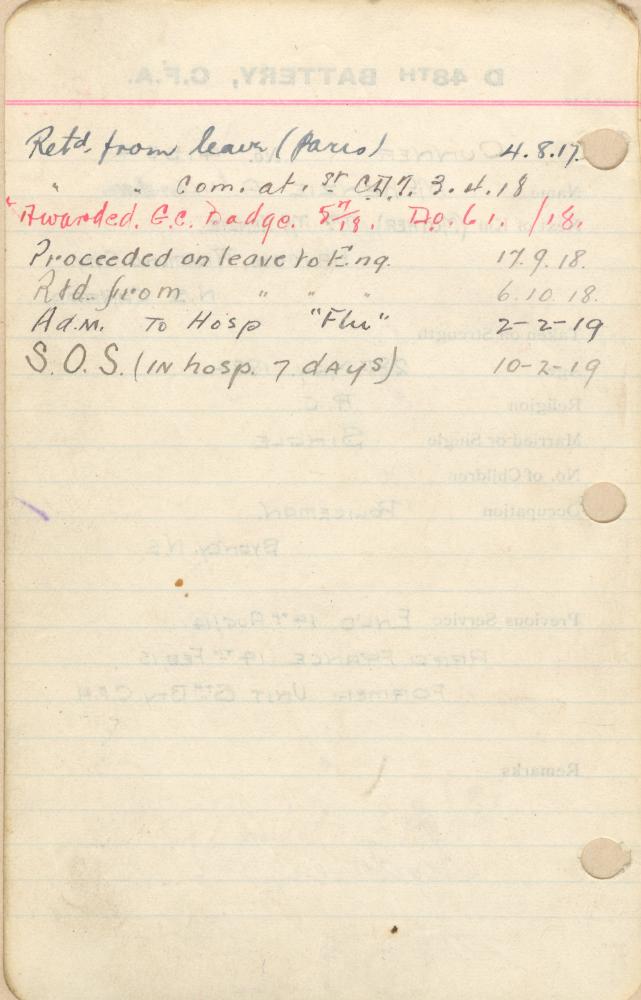 Retd. from leave (Paris) 4.8.17.
" " Com. at 1st C.D.T. 3.4.18
Awarded. G.C. Badge. 5/7/18. D.O. 61. /18.
Proceeded on leave to Eng. 17.9.18.
Rtd. from " " " 6.10.18.
Adm. To Hosp "Flu" 2-2-19
S.O.S. (IN hosp. 7 days) 10-2-19